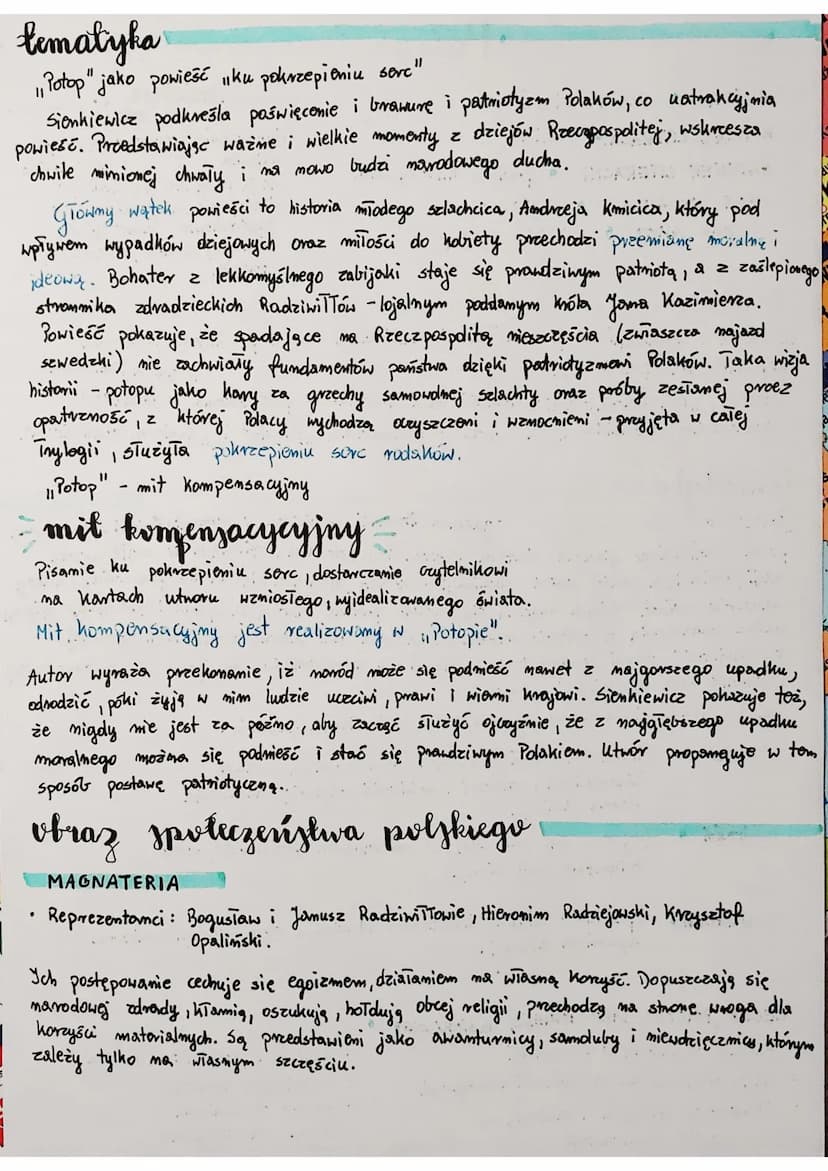 tematyka
„Potop" jako powieść „ku pokrzepieniu serc"
Sienkiewicz podkreśla poświęcenie i brawurę i patriotyzm Polaków, co uatrakcyjnia
powieść. Przedstawiając ważne i wielkie momenty z dziejów Rzeczpospolitej, wskrzesza
chwile minionej chwały i na nowo budzi narodowego ducha.
Główny wątek powieści to historia młodego szlachcica, Andrzeja Kmicica, który pod
wpływem wypadków dziejowych oraz miłości do kobiety przechodzi przemianę moralną i
ideową. Bohater z lekkomyślnego zabijaki staje się prawdziwym patriotą, a z zaślepionego
stronnika zdradzieckich Radziwiłłów - lojalnym poddanym króla Jana Kazimierza.
Powieść pokazuje, że spadające na Rzeczpospolitą nieszczęścia (zwłaszcza najazd
szwedzki) nie zachwiały fundamentów państwa dzięki patriotyzmowi Polaków. Taka wizja
historii - potopu jako kary za grzechy samowolnej szlachty oraz próby zesłanej przez
opatrzność, z której Polacy wychodzą oczyszczeni i wzmocnieni - przyjęta w całej
Trylogii, służyła pokrzepieniu serc rodaków.
„Potop" - mit kompensacyjny
mit kompensacycyjny
Pisanie ku pokrzepieniu serc, dostarczanie czytelnikowi
na kartach utworu wzniosłego, wyidealizowanego świata.
Mit kompensacyjny jest realizowany w „Potopie".
Autor wyraża przekonanie, iż naród może się podnieść nawet z najgorszego upadku,
odrodzić, póki żyją w nim ludzie uczciwi, prawi i wierni krajowi. Sienkiewicz pokazuje też,
że nigdy nie jest za późno, aby zacząć służyć ojczyźnie, że z najgłębszego upadku
moralnego można się podnieść i stać się prawdziwym Polakiem. Utwór propaguje w ten
sposób postawę patriotyczną.
obraz społeczeństwa polskiego
MAGNATERIA
• Reprezentanci: Bogusław i Janusz Radziwiłłowie, Hieronim Radziejowski, Krzysztof
Opaliński.
Ich postępowanie cechuje się egoizmem, działaniem na własną korzyść. Dopuszczają się
narodowej zdrady, kłamią, oszukują, hołdują obcej religii, przechodzą na stronę wroga dla
korzyści materialnych. Są przedstawieni jako awanturnicy, samoluby i niewdzięcznicy, którym
zależy tylko na własnym szczęściu.